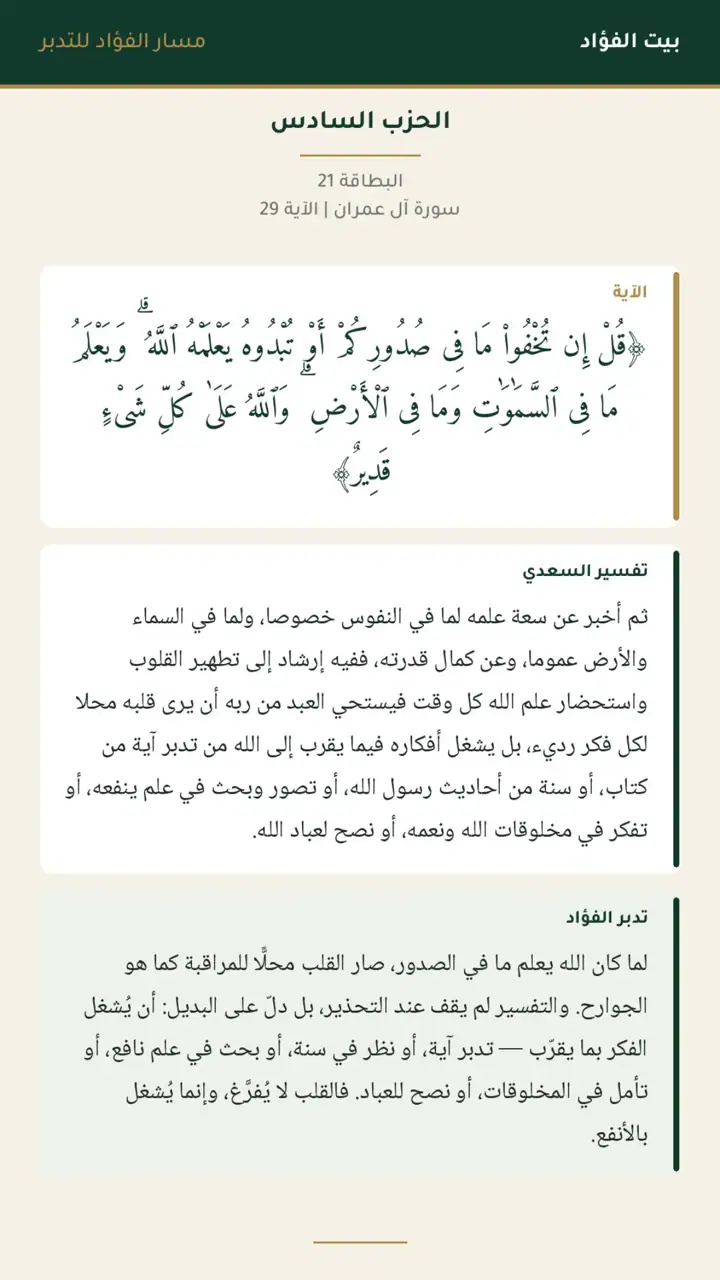 بيت الفؤاد
مسار الفؤاد للتدبر
الحزب السادس
البطاقة 21
سورة آل عمران | الآية 29
الآية
﴿قُلْ إِن تُخْفُوا۟ مَا فِى صُدُورِكُمْ أَوْ تُبْدُوهُ يَعْلَمْهُ ٱللَّهُ ۗ وَيَعْلَمُ
مَا فِى ٱلسَّمَـٰوَٰتِ وَمَا فِى ٱلْأَرْضِ ۗ وَٱللَّهُ عَلَىٰ كُلِّ شَىْءٍ
قَدِيرٌ﴾
تفسير السعدي
ثم أخبر عن سعة علمه لما في النفوس خصوصا، ولما في السماء
والأرض عموما، وعن كمال قدرته، ففيه إرشاد إلى تطهير القلوب
واستحضار علم الله كل وقت فيستحي العبد من ربه أن يرى قلبه محلا
لكل فكر رديء، بل يشغل أفكاره فيما يقرب إلى الله من تدبر آية من
كتاب، أو سنة من أحاديث رسول الله، أو تصور وبحث في علم ينفعه، أو
تفكر في مخلوقات الله ونعمه، أو نصح لعباد الله.
تدبر الفؤاد
لما كان الله يعلم ما في الصدور، صار القلب محلًّا للمراقبة كما هو
الجوارح. والتفسير لم يقف عند التحذير، بل دلّ على البديل: أن يُشغل
الفكر بما يقرّب — تدبر آية، أو نظر في سنة، أو بحث في علم نافع، أو
تأمل في المخلوقات، أو نصح للعباد. فالقلب لا يُفرَّغ، وإنما يُشغل
بالأنفع.